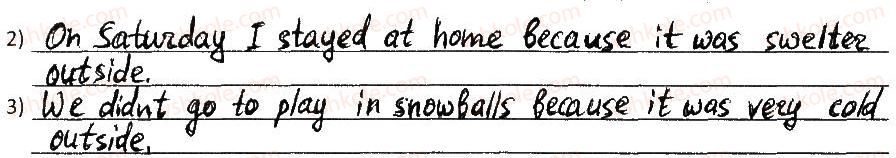 2) On Saturday I stayed at home because it was swelter
outside.
3) We didnt go to play in snowballs because it was very cold
outside.